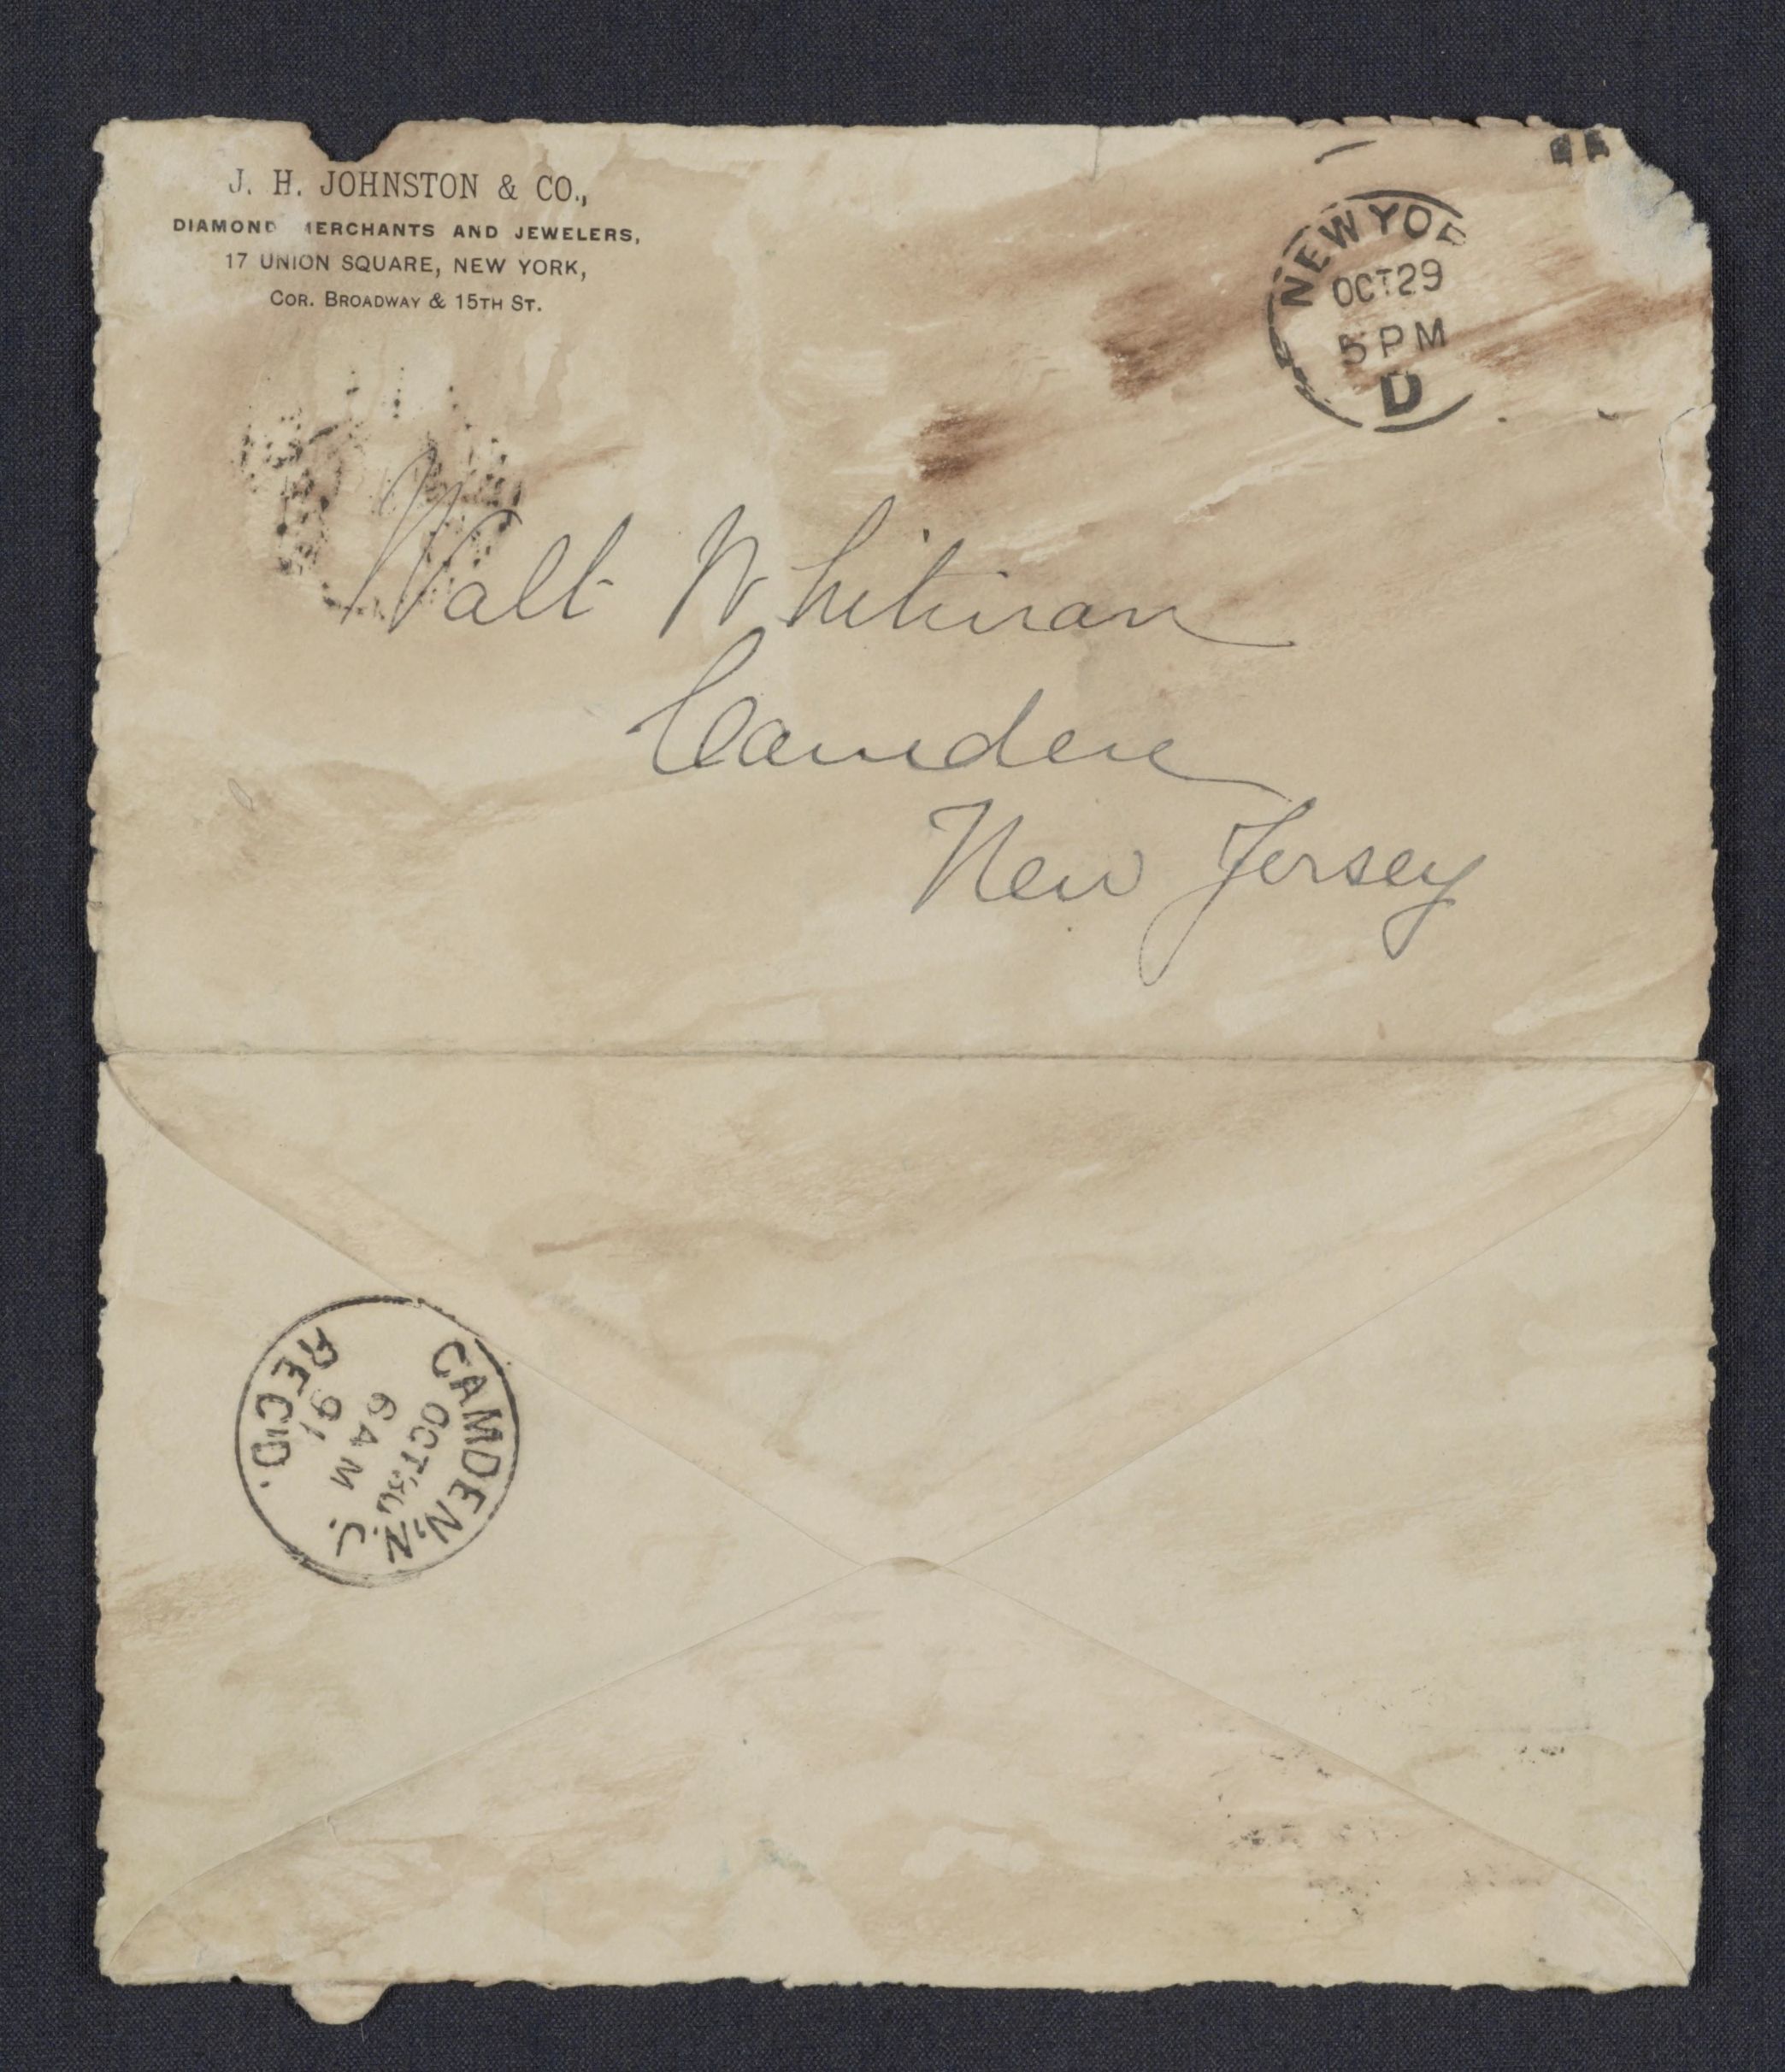 J. H. JOHNSTON & CO.,
DIAMOND MERCHANTS AND JEWELERS,
17 UNION SQUARE, NEW YORK,
COR. BROADWAY & 15TH ST.
NEW YOR
OCT 29
5 PM
D
Walt Whitman
Camden
New Jersey
CAMDEN, N.J.
OCT 30
6 AM
91
REC'D.